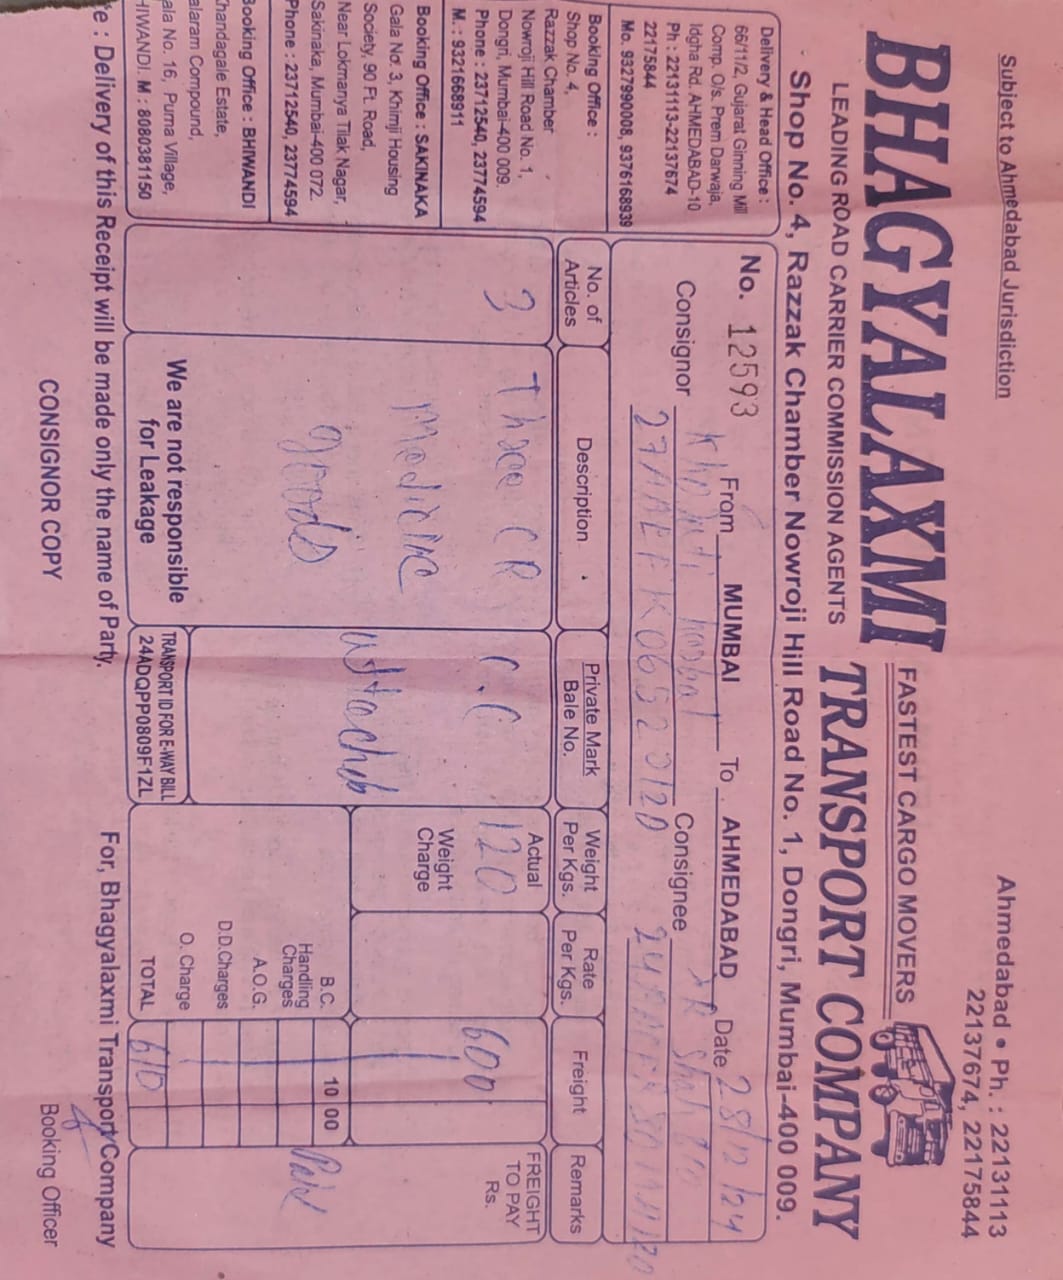 Subject to Ahmedabad Jurisdiction
Ahmedabad • Ph. : 22131113
22137674, 22175844
BHAGYALAXMI
FASTEST CARGO MOVERS
TRANSPORT COMPANY
LEADING ROAD CARRIER COMMISSION AGENTS
Shop No. 4, Razzak Chamber Nowroji Hill Road No. 1, Dongri, Mumbai-400 009.
Delivery & Head Office :
66/11/2, Gujarat Ginning Mill
Comp. O/s. Prem Darwaja,
Idgha Rd. AHMEDABAD-10
Ph : 22131113-22137674
22175844
Mo. 9327990008, 9376168939
Booking Office :
Shop No. 4,
Razzak Chamber
Nowroji Hill Road No. 1,
Dongri, Mumbai-400 009.
Phone : 23712540, 23774594
M. : 9321668911
Booking Office : SAKINAKA
Gala No. 3, Khimji Housing
Society, 90 Ft. Road,
Near Lokmanya Tilak Nagar,
Sakinaka, Mumbai-400 072.
Phone : 23712540, 23774594
Booking Office : BHIWANDI
Khandagale Estate,
alaram Compound,
ala No. 16, Purna Village,
HIWANDI. M : 8080381150
No. 12593 From MUMBAI To AHMEDABAD Date 28/12/24
Consignor
Consignee
No. of Articles
Description
Private Mark
Bale No.
Weight Per Kgs.
Rate Per Kgs.
Freight
Remarks
3
Three CR
medicine
goods
C.C
Actual
120
Weight Charge
600
FREIGHT TO PAY Rs.
B.C. 10 00
Handling Charges
A.O.G.
D.D.Charges
O. Charge
TOTAL 610
Paid
We are not responsible
for Leakage
TRANSPORT ID FOR E-WAY BILL
24ADQPP0809F1ZL
e : Delivery of this Receipt will be made only the name of Party.
For, Bhagyalaxmi Transport Company
CONSIGNOR COPY
Booking Officer